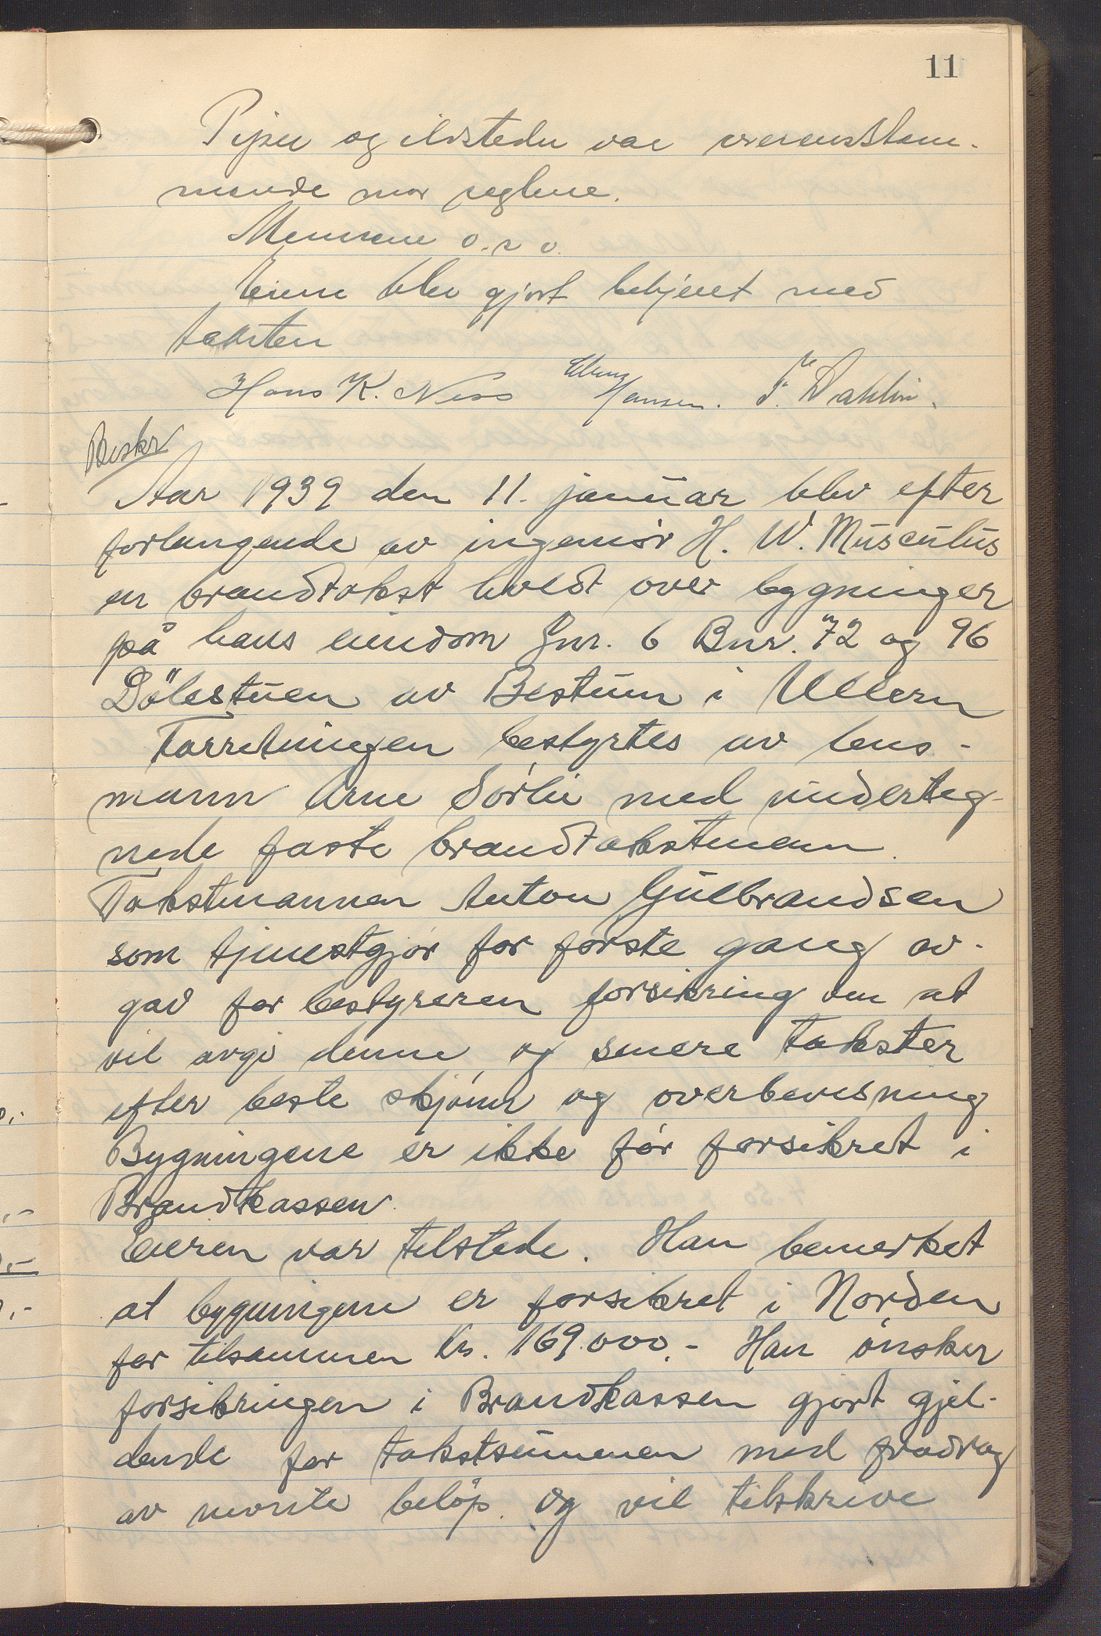 11
Piper og ildsteder var overensstem-
mende mor reglene.
Mennene o.s.v.
Eieren blev gjort bekjent med
taksten
Hans K. Ness Hansen. F. Dahlin.
Beskr
Aar 1939 den 11. januar blev efter
forlangende av ingeniör H. W. Musculus
en brandtakst holdt over bygninger
på hans eiendom Gnr. 6 Bnr. 72 og 96
Dölestuen av Bestum i Ullern
Forretningen bestyrtes av lens-
mann Arne Sörlie med underteg-
nede faste brandtakstmenn.
Takstmannen Anton Gulbrandsen
som tjenestgjör for förste gang av-
gav for bestyreren forsikring om at
vil avgi denne og senere takster
efter beste skjönn og overbevisning
Bygningene er ikke för forsikret i
Brandkassen.
Eieren var tilstede. Han bemerket
at bygningene er forsikret i Norden
for tilsammen kr. 169.000.- Han önsker
forsikringen i Brandkassen gjort gjel-
dende for takstsummen med fradrag
av nevnte belöp. og vil tilskrive